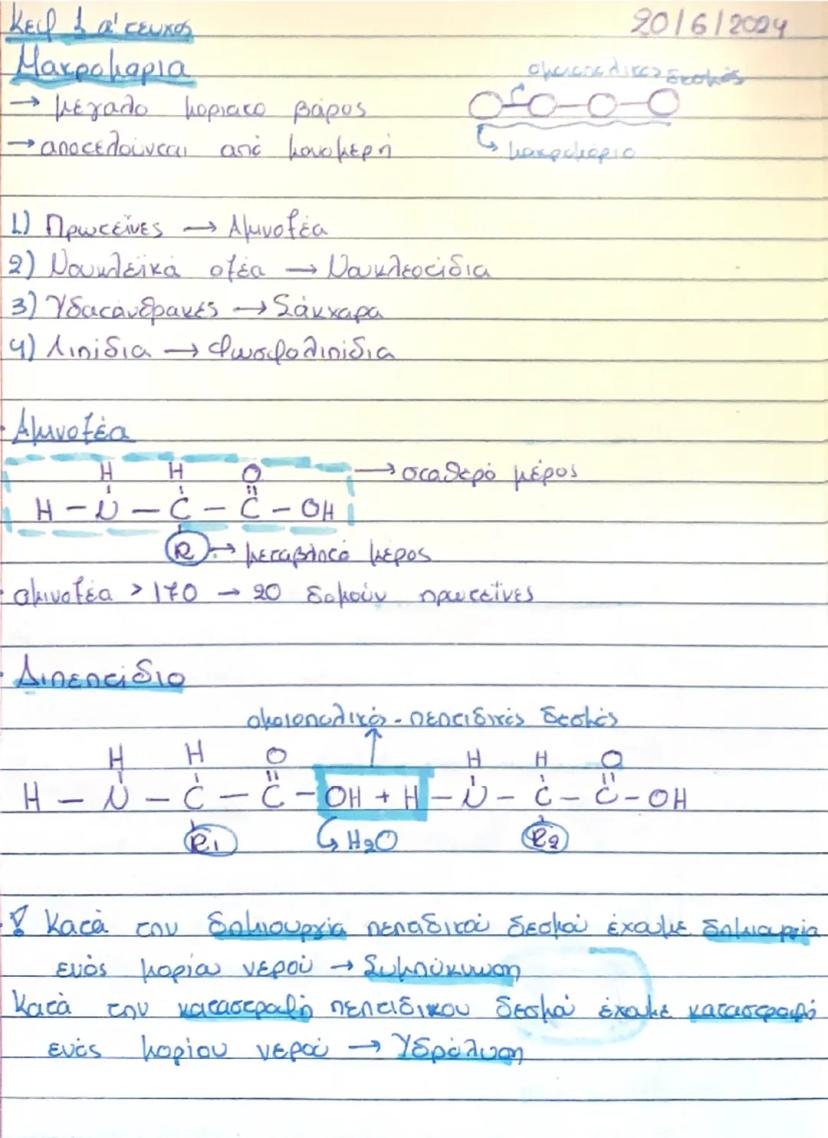 Κεφ 1 α' τευχος 20/6/2024
Μακρομόρια
→ μεγαλο μοριακο βάρος
ομοιοπολικος δεσμός
→ αποτελούνται από μονομερή
μακρομόριο
1) Πρωτεΐνες → Αμινοξέα
2) Νουκλεϊκά οξέα → Νουκλεοτίδια
3) Υδατάνθρακες → Σάκχαρα
4) Λιπίδια → Φωσφολιπίδια
Αμινοξέα
H H O → σταθερό μέρος
H - N - C - C - OH
R → μεταβλητό μέρος
αμινοξέα > 170 → 20 δομούν πρωτεΐνες
Διπεπτίδιο
ομοιοπολικός - πεπτιδικός δεσμός
H H O H H O
H - N - C - C - OH + H - N - C - C - OH
R1 H2O R2
! Κατά την δημιουργία πεπτιδικού δεσμού έχουμε δημιουργία
ενός μορίου νερού → Συμπύκνωση
Κατά την καταστροφή πεπτιδικου δεσμού έχουμε καταστροφή
ενός μορίου νερού → Υδρόλυση